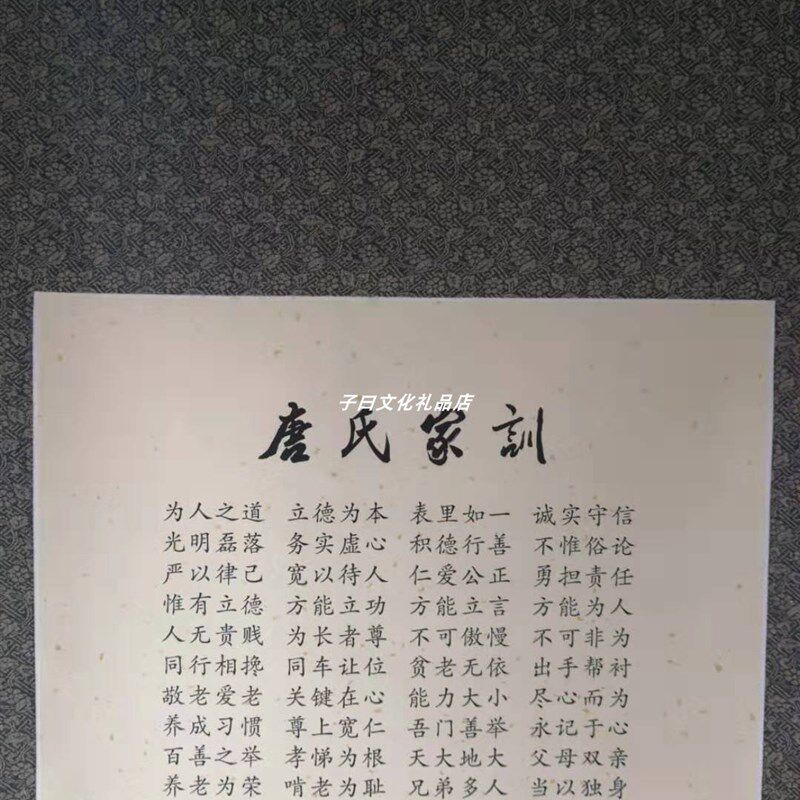 子曰文化礼品店
唐氏家訓
为人之道 立德为本 表里如一 诚实守信
光明磊落 务实虚心 积德行善 不惟俗论
严以律己 宽以待人 仁爱公正 勇担责任
惟有立德 方能立功 方能立言 方能为人
人无贵贱 为长者尊 不可傲慢 不可非为
同行相搀 同车让位 贫老无依 出手帮衬
敬老爱老 关键在心 能力大小 尽心而为
养成习惯 尊上宽仁 吾门善举 永记于心
百善之举 孝悌为根 天大地大 父母双亲
养老为荣 啃老为耻 兄弟多人 当以独身